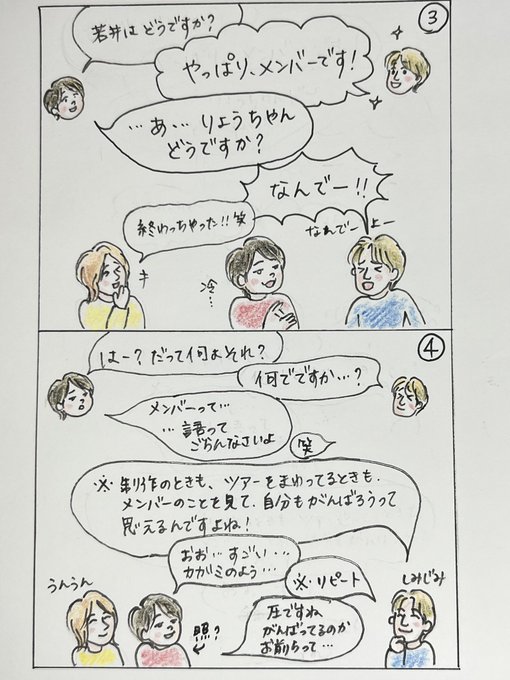 ③
若井は どうですか？
やっぱり、メンバーです！
…あ… りょうちゃん
どうですか？
なんでー!!
なんでーよー
終わっちゃった!! 笑
キ
冷…
④
はー？だって何よそれ？
何でですか…？
メンバーって…
…語って
ごらんなさいよ
笑
※制作のときも、ツアーをまわってるときも、
メンバーのことを見て、自分もがんばろうって
思えるんですよね！
おお…すごい…
カガミのよう…
※リピート
うんうん
照？
圧ですね
がんばってるのが
お前らって…
しみじみ